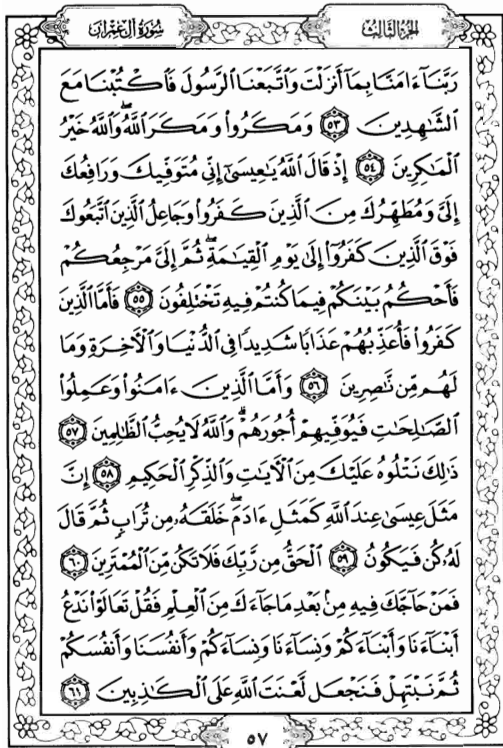 سُورَةُ آلِ عِمْرَان
الجُزْءُ الثَّالِثُ
رَبَّنَآ ءَامَنَّا بِمَآ أَنزَلْتَ وَاتَّبَعْنَا الرَّسُولَ فَاكْتُبْنَا مَعَ
الشَّاهِدِينَ ٥٣ وَمَكَرُوا وَمَكَرَ اللَّهُ وَاللَّهُ خَيْرُ
الْمَاكِرِينَ ٥٤ إِذْ قَالَ اللَّهُ يَاعِيسَىٰٓ إِنِّي مُتَوَفِّيكَ وَرَافِعُكَ
إِلَيَّ وَمُطَهِّرُكَ مِنَ الَّذِينَ كَفَرُوا وَجَاعِلُ الَّذِينَ اتَّبَعُوكَ
فَوْقَ الَّذِينَ كَفَرُوٓا إِلَىٰ يَوْمِ الْقِيَامَةِ ۖ ثُمَّ إِلَيَّ مَرْجِعُكُمْ
فَأَحْكُمُ بَيْنَكُمْ فِيمَا كُنتُمْ فِيهِ تَخْتَلِفُونَ ٥٥ فَأَمَّا الَّذِينَ
كَفَرُوا فَأُعَذِّبُهُمْ عَذَابًا شَدِيدًا فِي الدُّنْيَا وَالْآخِرَةِ وَمَا
لَهُم مِّن نَّاصِرِينَ ٥٦ وَأَمَّا الَّذِينَ ءَامَنُوا وَعَمِلُوا
الصَّالِحَاتِ فَيُوَفِّيهِمْ أُجُورَهُمْ ۗ وَاللَّهُ لَا يُحِبُّ الظَّالِمِينَ ٥٧
ذَٰلِكَ نَتْلُوهُ عَلَيْكَ مِنَ الْآيَاتِ وَالذِّكْرِ الْحَكِيمِ ٥٨ إِنَّ
مَثَلَ عِيسَىٰ عِندَ اللَّهِ كَمَثَلِ ءَادَمَ ۖ خَلَقَهُ مِن تُرَابٍ ثُمَّ قَالَ
لَهُ كُن فَيَكُونُ ٥٩ الْحَقُّ مِن رَّبِّكَ فَلَا تَكُن مِّنَ الْمُمْتَرِينَ ٦٠
فَمَنْ حَآجَّكَ فِيهِ مِنْ بَعْدِ مَا جَآءَكَ مِنَ الْعِلْمِ فَقُلْ تَعَالَوْا نَدْعُ
أَبْنَآءَنَا وَأَبْنَآءَكُمْ وَنِسَآءَنَا وَنِسَآءَكُمْ وَأَنفُسَنَا وَأَنفُسَكُمْ
ثُمَّ نَبْتَهِلْ فَنَجْعَل لَّعْنَتَ اللَّهِ عَلَى الْكَاذِبِينَ ٦١
٥٧